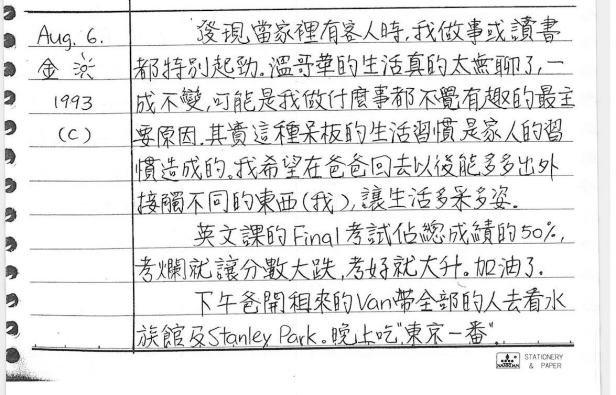 Aug. 6. 發現當家裡有客人時,我做事或讀書
金 都特別起勁。溫哥華的生活真的太無聊了,一
1993 成不變,可能是我做什麼事都不覺有趣的最主
(C) 要原因.其實這種呆板的生活習慣是家人的習
慣造成的。我希望在爸爸回去以後能多多出外
接觸不同的東西(我),讓生活多采多姿.
英文課的Final考試佔總成績的50%,
考爛就讓分數大跌,考好就大升。加油了.
下午爸開租來的Van帶全部的人去看水
族館及Stanley Park。晚上吃"東京一番".
STATIONERY
& PAPER